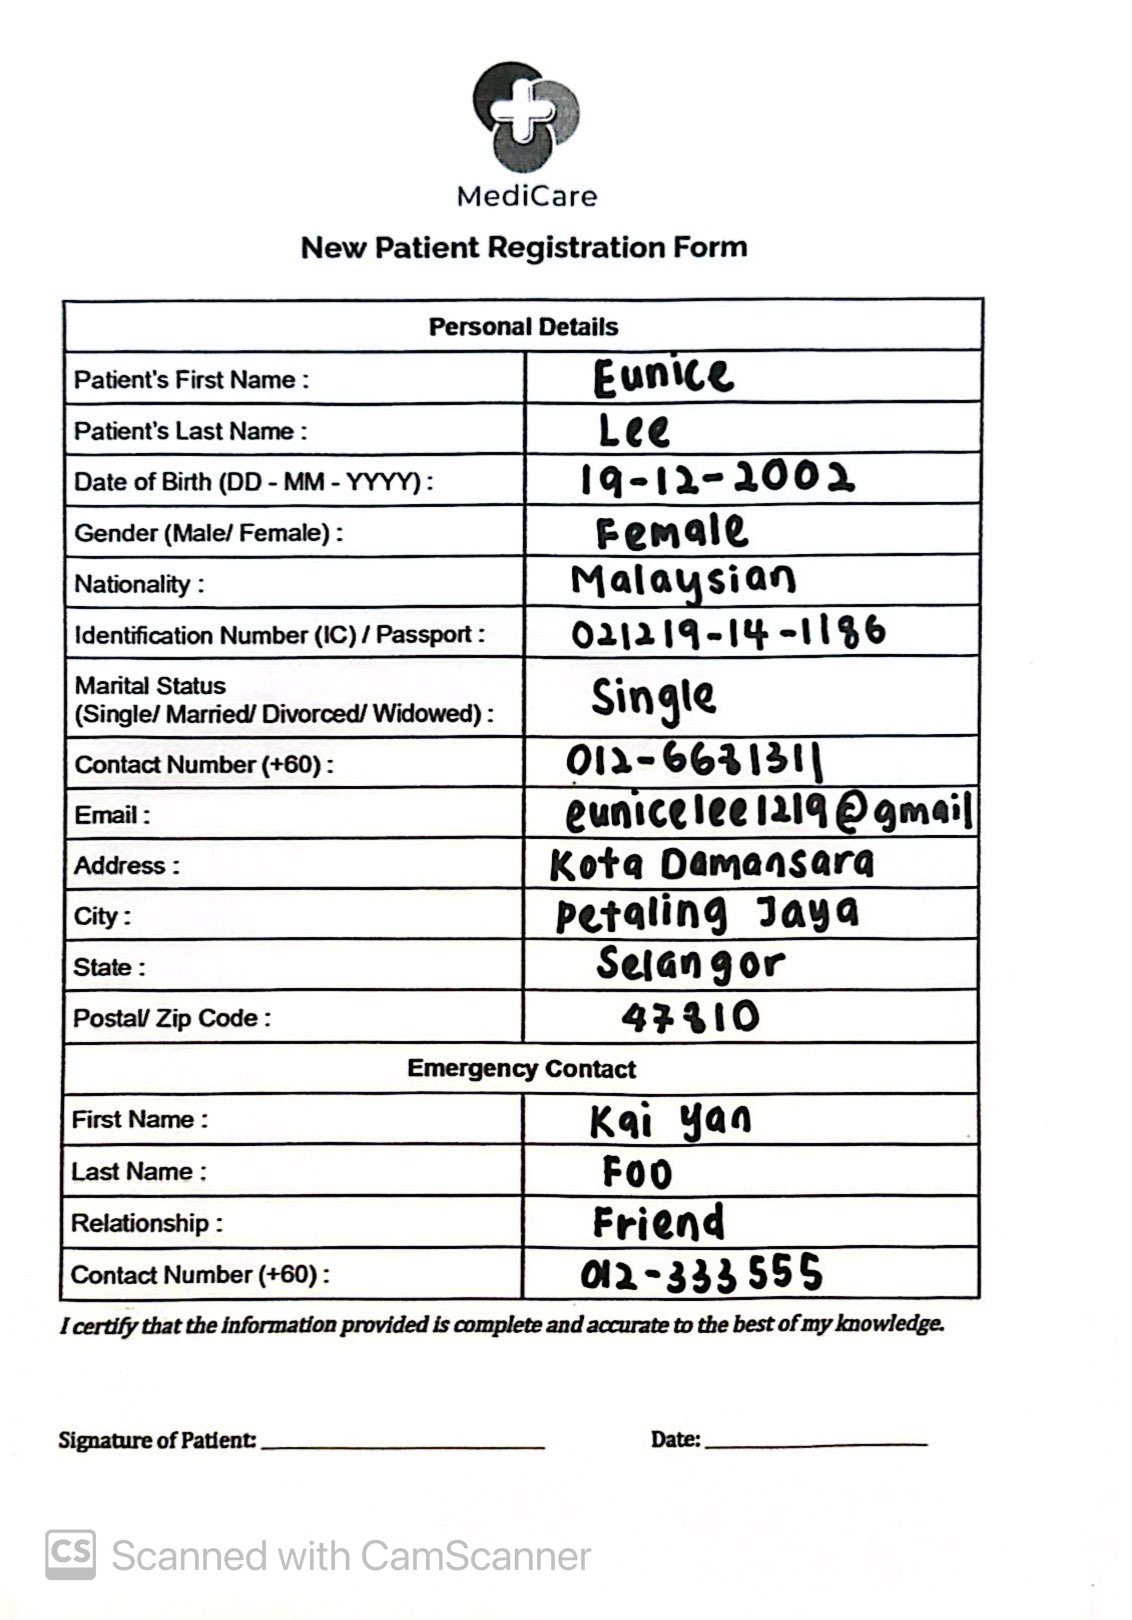 MediCare
New Patient Registration Form
Personal Details
Patient's First Name : Eunice
Patient's Last Name : Lee
Date of Birth (DD - MM - YYYY) : 19-12-2002
Gender (Male/ Female) : Female
Nationality : Malaysian
Identification Number (IC) / Passport : 021219-14-1186
Marital Status
(Single/ Married/ Divorced/ Widowed) : Single
Contact Number (+60) :
Email : eunicelee1219@gmail
Address : Kota Damansara
City : Petaling Jaya
State : Selangor
Postal/ Zip Code : 47810
Emergency Contact
First Name : Kai Yan
Last Name : Foo
Relationship : Friend
Contact Number (+60) : 012-333555
I certify that the information provided is complete and accurate to the best of my knowledge.
Signature of Patient: Date:
CS Scanned with CamScanner